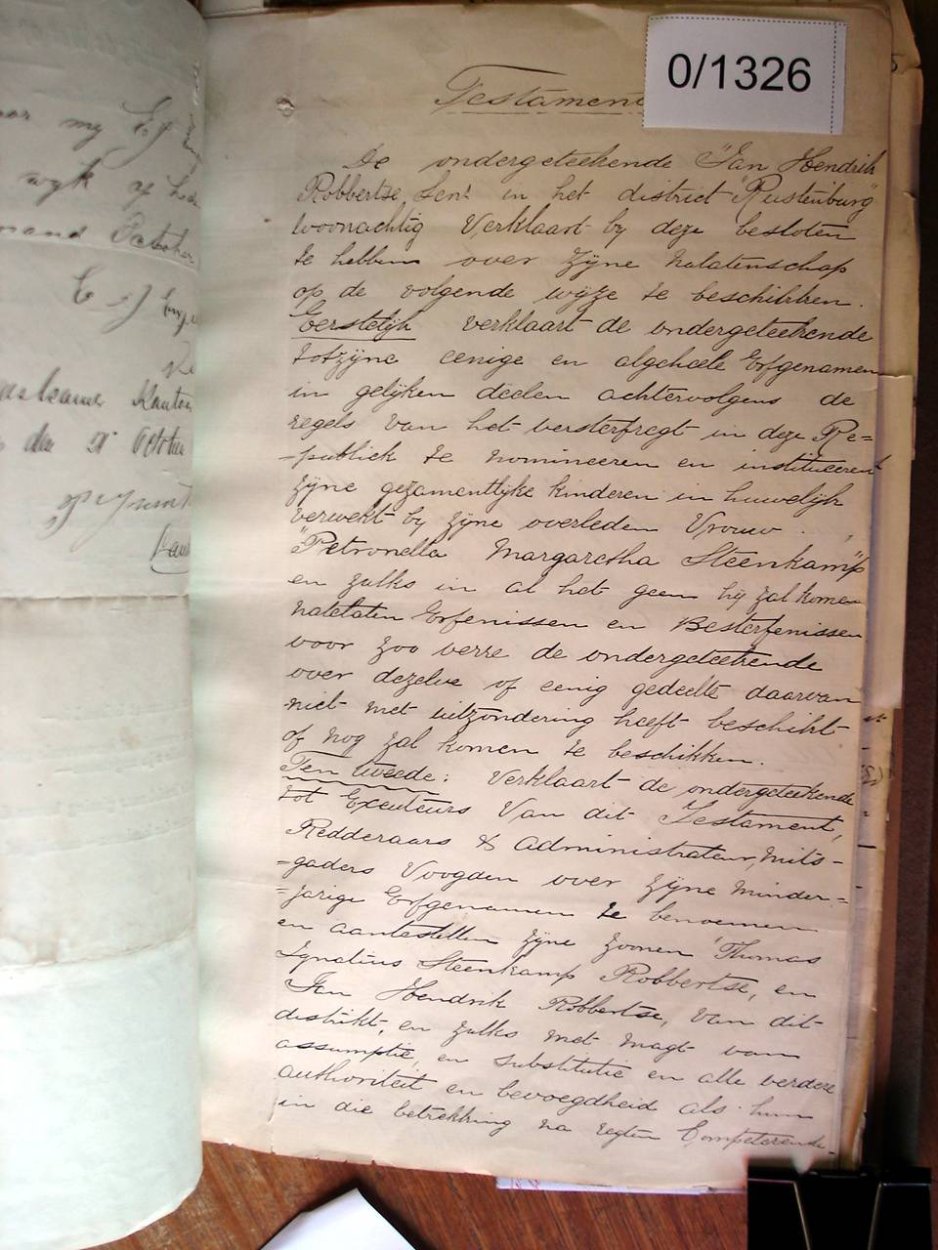 0/1326
Testament
De ondergeteekende "Jan Hendrik
Robbertse Senr in het district "Rustenburg"
woonachtig Verklaart by deze besloten
te hebben over zyne nalatenschap
op de volgende wijze te beschikken.
Eerstelijk verklaart de ondergeteekende
tot zyne eenige en algeheele Erfgenamen
in gelijken deelen achtervolgens de
regels van het versterfregt in deze Re=
-publiek te nomineeren en institueeren
zyne gezamentlyke kinderen in huwelijk
verwekt by zyne overleden Vrouw
"Petronella Margaretha Steenkamp"
en zulks in al het geen hy zal komen
natelaten Erfenissen en Besterfenissen
voor zoo verre de ondergeteekende
over dezelve of eenig gedeelte daarvan
niet met uitzondering heeft beschikt
of nog zal komen te beschikken.
Ten tweede: Verklaart de ondergeteekende
tot Executeurs Van dit Testament,
Redderaars & Administrateurs, mits-
=gaders Voogden over zyne minder=
=jarige Erfgenamen te benoemen
en aantestellen zyne zoonen Thomas
Ignatius Steenkamp Robbertse, en
Jan Hendrik Robbertse, Van dit
distrikt, en zulks met magt van
assumptie, en substitutie en alle verdere
authoriteit en bevoegdheid als hun
in die betrekking na regten Competeerende
my
wyk of
October
Kantoor
den October